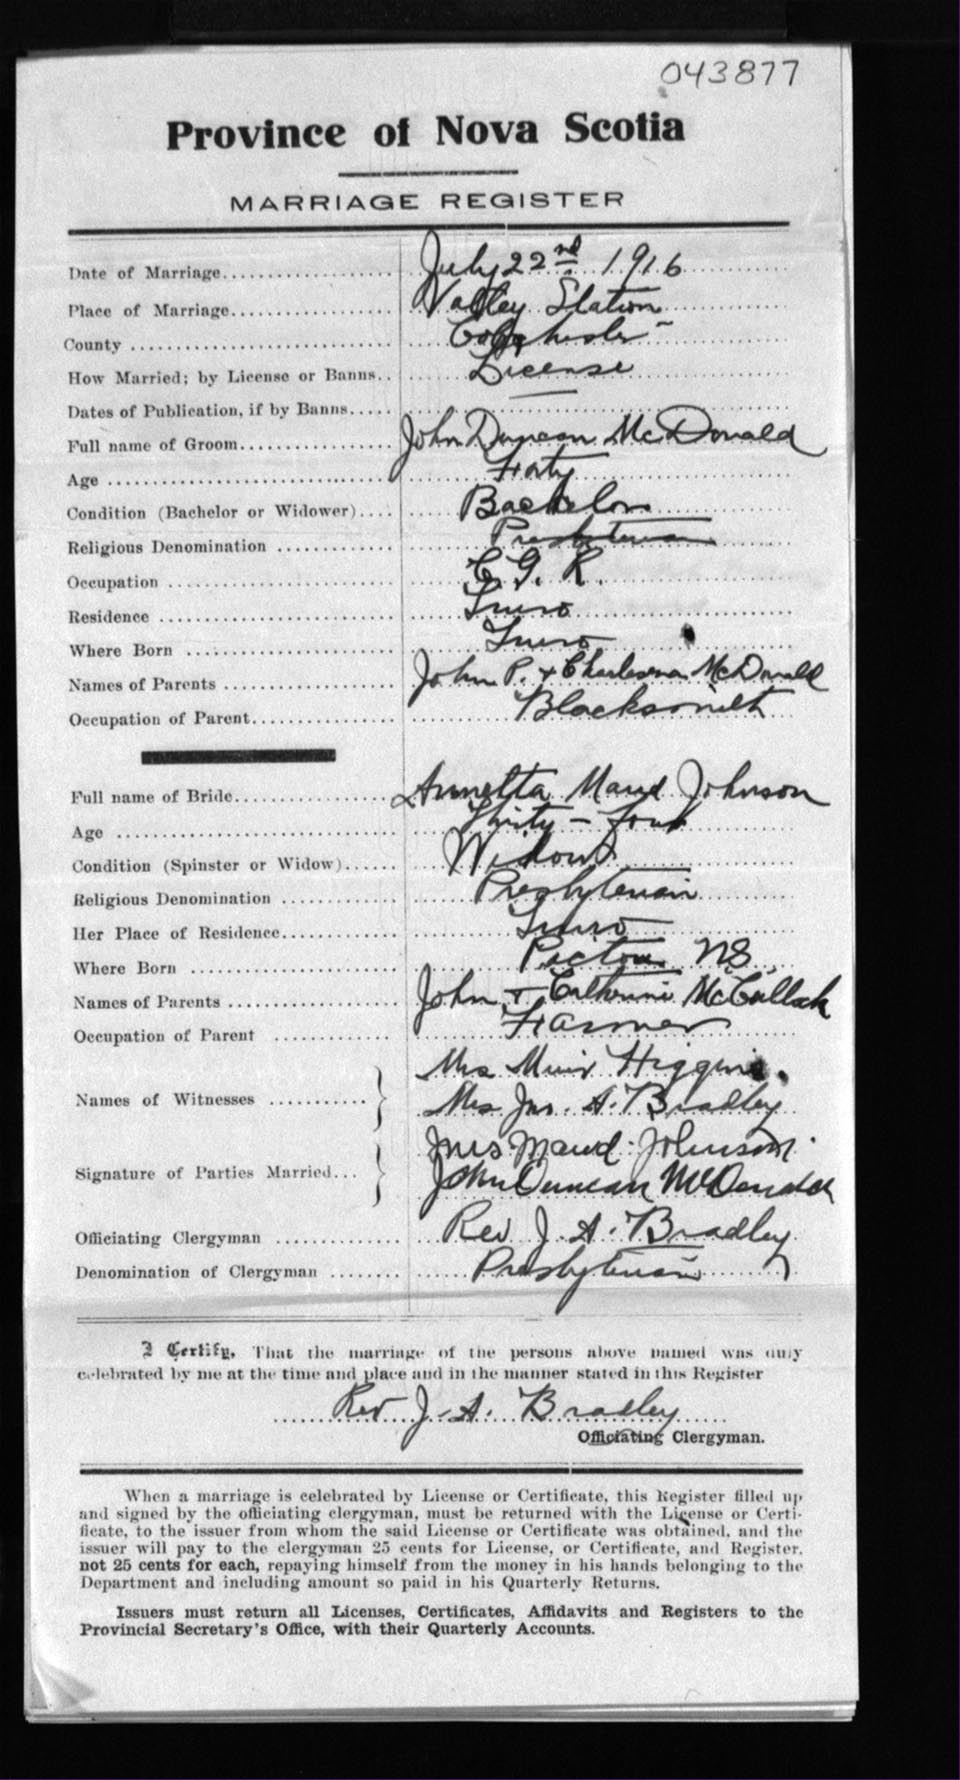 043877
Province of Nova Scotia
MARRIAGE REGISTER
Date of Marriage July 22nd 1916
Place of Marriage Valley Station
County Colchester
How Married; by License or Banns License
Dates of Publication, if by Banns —
Full name of Groom John Duncan McDonald
Age Forty
Condition (Bachelor or Widower) Bachelor
Religious Denomination Presbyterian
Occupation C. G. R.
Residence Truro
Where Born Truro
Names of Parents John P. + McDonald
Occupation of Parent Blacksmith
Full name of Bride Annetta Maud Johnson
Age Thirty-four
Condition (Spinster or Widow) Widow
Religious Denomination Presbyterian
Her Place of Residence Truro
Where Born Pictou NS.
Names of Parents John + Catherine McCullock
Occupation of Parent Farmer
Names of Witnesses Mrs Muir Higgins.
Mrs Jno. A. Bradley
Signature of Parties Married Mrs Maud Johnson.
John Duncan McDonald
Officiating Clergyman Rev J. A. Bradley
Denomination of Clergyman Presbyterian
I Certify, That the marriage of the persons above named was duly
celebrated by me at the time and place and in the manner stated in this Register
Rev J. A. Bradley
Officiating Clergyman.
When a marriage is celebrated by License or Certificate, this Register filled up
and signed by the officiating clergyman, must be returned with the License or Certi-
ficate, to the issuer from whom the said License or Certificate was obtained, and the
issuer will pay to the clergyman 25 cents for License, or Certificate, and Register,
not 25 cents for each, repaying himself from the money in his hands belonging to the
Department and including amount so paid in his Quarterly Returns.
Issuers must return all Licenses, Certificates, Affidavits and Registers to the
Provincial Secretary's Office, with their Quarterly Accounts.